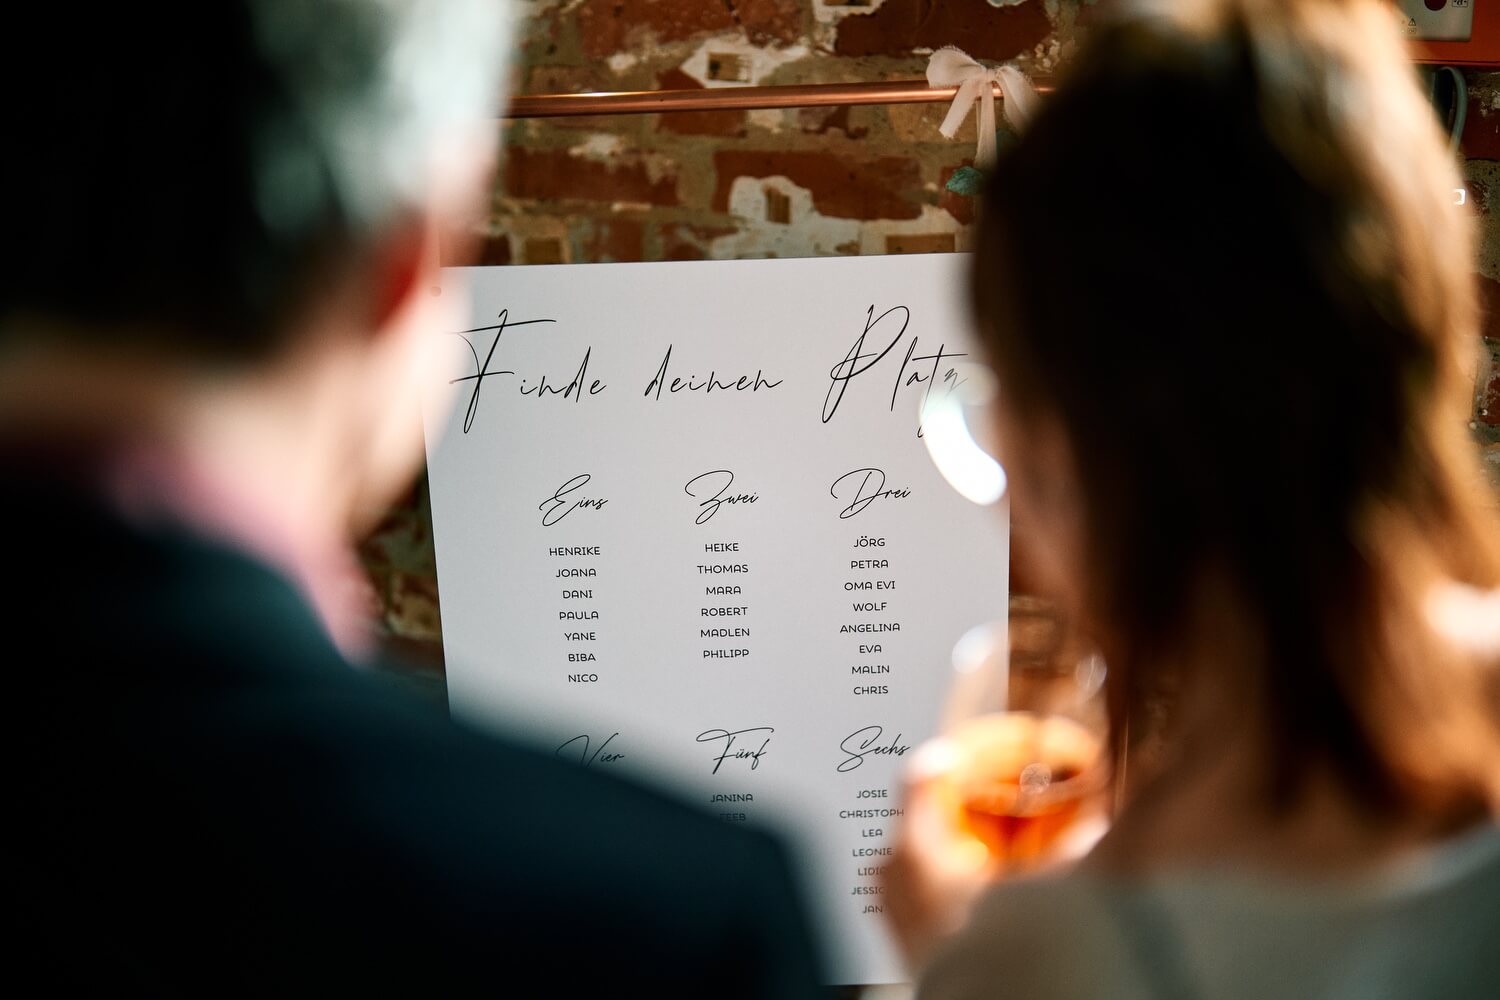 Finde deinen Platz
Eins
HENRIKE
JOANA
DANI
PAULA
YANE
BIBA
NICO
Zwei
HEIKE
THOMAS
MARA
ROBERT
MADLEN
PHILIPP
Drei
JÖRG
PETRA
OMA EVI
WOLF
ANGELINA
EVA
MALIN
CHRIS
Vier
Fünf
JANINA
Sechs
JOSIE
CHRISTOPH
LEA
LEONIE
JAN